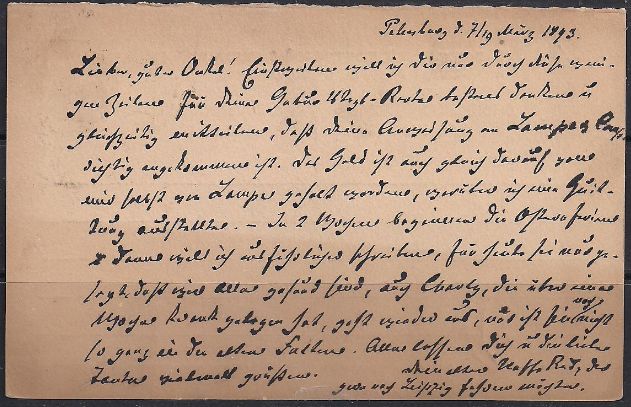 Petersburg d. 7/19 März 1893.
Lieber, guter Onkel! Einstweilen will ich Dir nur durch diese weni-
gen Zeilen für Deine Geburtstags-Karte bestens danken u
gleichzeitig mitteilen, daß Deine Anweisung an Lampe
richtig angekommen ist. Das Geld ist auch gleich darauf von
mir selbst von Lampe geholt worden, worüber ich eine Quit-
tung ausstellte. – In 2 Wochen beginnen die Osterferien
u. dann will ich ausführlicher schreiben, für heute sei nur ge-
sagt, daß wir alle gesund sind, auch Charly, die über eine
Woche krank gelegen hat, geht wieder aus, nur ist sie noch nicht
so ganz in den alten Falten. Alle lassen Dich u die liebe
Tante vielmals grüßen. Dein alter Neffe der
gern nach Leipzig fahren möchte.